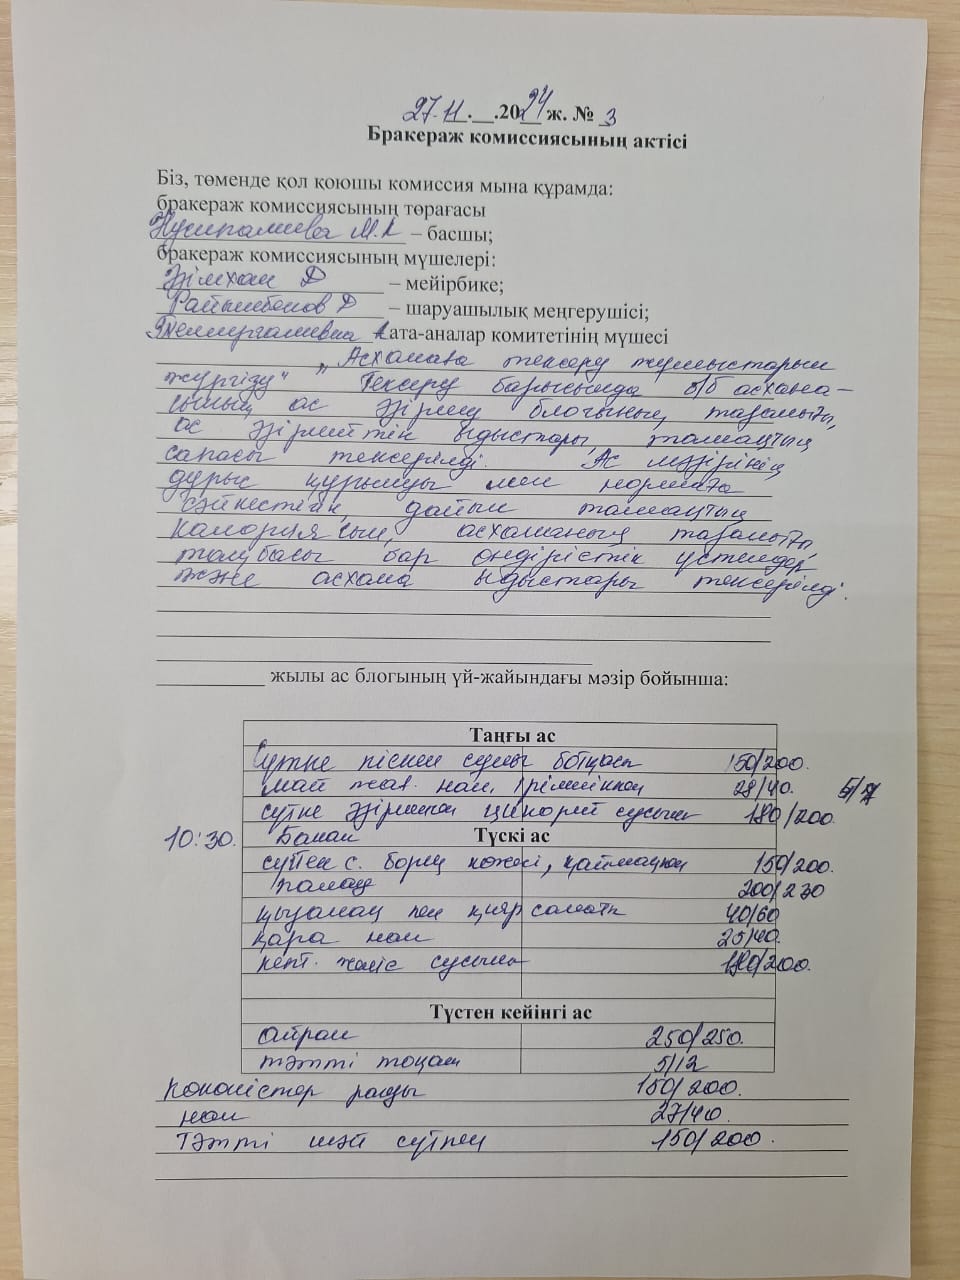 27.11.__.2024 ж. № 3
Бракераж комиссиясының актісі
Біз, төменде қол қоюшы комиссия мына құрамда:
бракераж комиссиясының төрағасы
Нусипалиева М.К – басшы;
бракераж комиссиясының мүшелері:
Әзімхан Д – мейірбике;
Райымбеков Р – шаруашылық меңгерушісі;
ата-аналар комитетінің мүшесі
„Асханаға тексеру жұмыстарын
жүргізу" Тексеру барысында б/б асхана-
сының ас әзірлеу блогының тазалығы,
ас әзірлейтін ыдыстары, тамақтың
сапасы тексерілді. Ас мәзірінің
дұрыс құрылуы мен нормаға
сәйкестігі, дайын тамақтың
калориясын, асхананың тазалығы,
таңбасы бар өндірістік үстелдер
және асхана ыдыстары тексерілді.
жылы ас блогының үй-жайындағы мәзір бойынша:
Таңғы ас
Сүтке піскен сұлы ботқасы 150/200.
май жағ. нан, ірімшікпен 28/40. 5/7
сүтке әзірленген цикорий сусыны 180/200
10:30. Банан Түскі ас
сүтпен с. борщ көжесі, қаймақпен 150/200.
палау 200/230
қызанақ пен қияр салаты 40/60
қара нан 25/40.
кепт. жеміс сусыны 180/200.
Түстен кейінгі ас
айран 250/250.
тәтті тоқаш 5/12
көкөністер рагуы 150/200.
нан 27/40.
Тәтті шәй сүтпен 150/200.